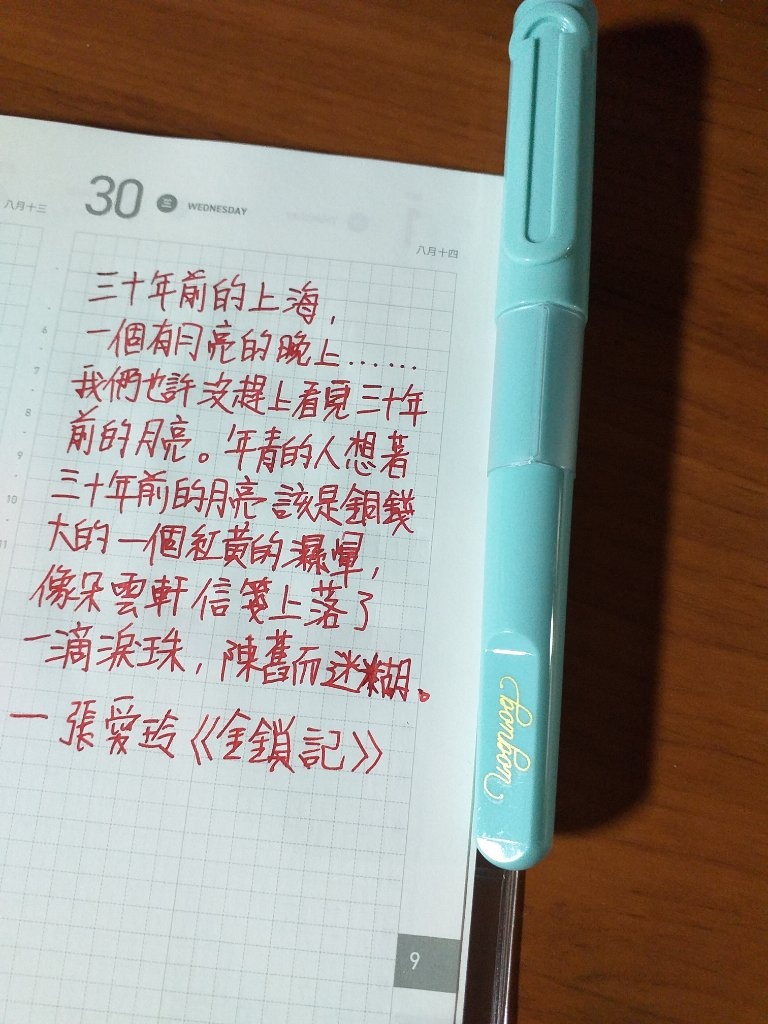 八月十三
30 三 WEDNESDAY
八月十四
三十年前的上海，
一個有月亮的晚上……
我們也許没趕上看見三十年
前的月亮。年青的人想著
三十年前的月亮該是銅錢
大的一個紅黃的濕暈，
像朵雲軒信箋上落了
一滴淚珠，陳舊而迷糊。
— 張愛玲《金鎖記》
6
7
8
9
10
11
bonbon
9